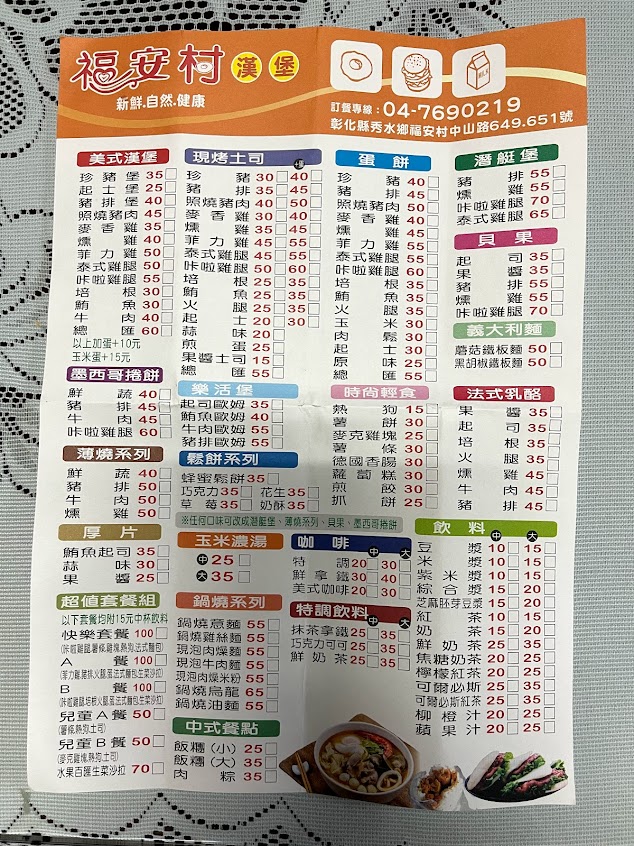 福安村漢堡
新鮮.自然.健康
MILK
訂餐專線：04-7690219
彰化縣秀水鄉福安村中山路649.651號
美式漢堡
珍豬堡 35
起士堡 25
豬排堡 40
照燒豬肉 45
麥香雞 35
燻雞 40
菲力雞 50
泰式雞腿 50
咔啦雞腿 55
培根 30
鮪魚 30
牛肉 40
總匯 60
以上加蛋+10元
玉米蛋+15元
墨西哥捲餅
鮮蔬 40
豬排 45
牛肉 45
咔啦雞腿 60
薄燒系列
鮮蔬 40
豬排 50
牛肉 50
燻雞 50
厚片
鮪魚起司 35
蒜味 30
果醬 25
超值套餐組
以下套餐均附15元中杯飲料
快樂套餐 100
(咔啦雞腿.薯條.雞塊.熱狗.法式麵包)
A餐 100
B餐 100
兒童A餐 50
(薯條.熱狗.土司)
兒童B餐 50
(麥克雞塊.熱狗.土司)
水果百匯生菜沙拉 70
現烤土司 +蛋
珍豬 30 40
豬排 35 45
照燒豬肉 40 50
麥香雞 30 40
燻雞 35 45
菲力雞 45 55
泰式雞腿 45 55
咔啦雞腿 50 60
培根 25 35
鮪魚 25 35
火腿 25 35
起士 20 30
蒜味 20
煎蛋 25
果醬土司 15
總匯 55
樂活堡
起司歐姆 35
鮪魚歐姆 40
牛肉歐姆 55
豬排歐姆 55
鬆餅系列
蜂蜜鬆餅 35
巧克力 35 花生 35
草莓 35 奶酥 35
※任何口味可改成潛艇堡、薄燒系列、貝果、墨西哥捲餅
玉米濃湯
中 25
大 35
鍋燒系列
鍋燒意麵 55
鍋燒雞絲麵 55
現泡肉燥麵 55
現泡牛肉麵 55
現泡肉燥米粉 55
鍋燒烏龍 65
鍋燒油麵 55
中式餐點
飯糰(小) 25
飯糰(大) 35
肉粽 35
蛋餅
珍豬 40
豬排 45
照燒豬肉 50
麥香雞 40
燻雞 45
菲力雞 55
泰式雞腿 55
咔啦雞腿 55
培根 35
鮪魚 35
火腿 35
玉米 30
肉鬆 30
起士 30
原味 25
總匯 55
時尚輕食
熱狗 15
薯餅 30
麥克雞塊 25
薯條 30
德國香腸 30
蘿蔔糕 30
煎餃 30
抓餅 25
咖啡 中 大
特調 20 30
鮮拿鐵 30 40
美式咖啡 20 30
特調飲料 中 大
抹茶拿鐵 25 35
巧克力可可 25 35
鮮奶茶 25 35
潛艇堡
豬排 55
燻雞 55
咔啦雞腿 70
泰式雞腿 65
貝果
起司 35
果醬 35
豬排 55
燻雞 55
咔啦雞腿 70
義大利麵
蘑菇鐵板麵 50
黑胡椒鐵板麵 50
法式乳酪
果醬 35
起司 35
培根 35
火腿 35
燻雞 45
牛肉 45
豬排 45
飲料 中 大
豆漿 10 15
米漿 10 15
紫米漿 10 15
綜合漿 15 20
芝麻胚芽豆漿 15 20
紅茶 10 15
奶茶 15 20
鮮奶茶 25 35
焦糖奶茶 20 25
檸檬紅茶 20 25
可爾必斯 25 35
可爾必斯紅茶 25 35
柳橙汁 20 25
蘋果汁 20 25